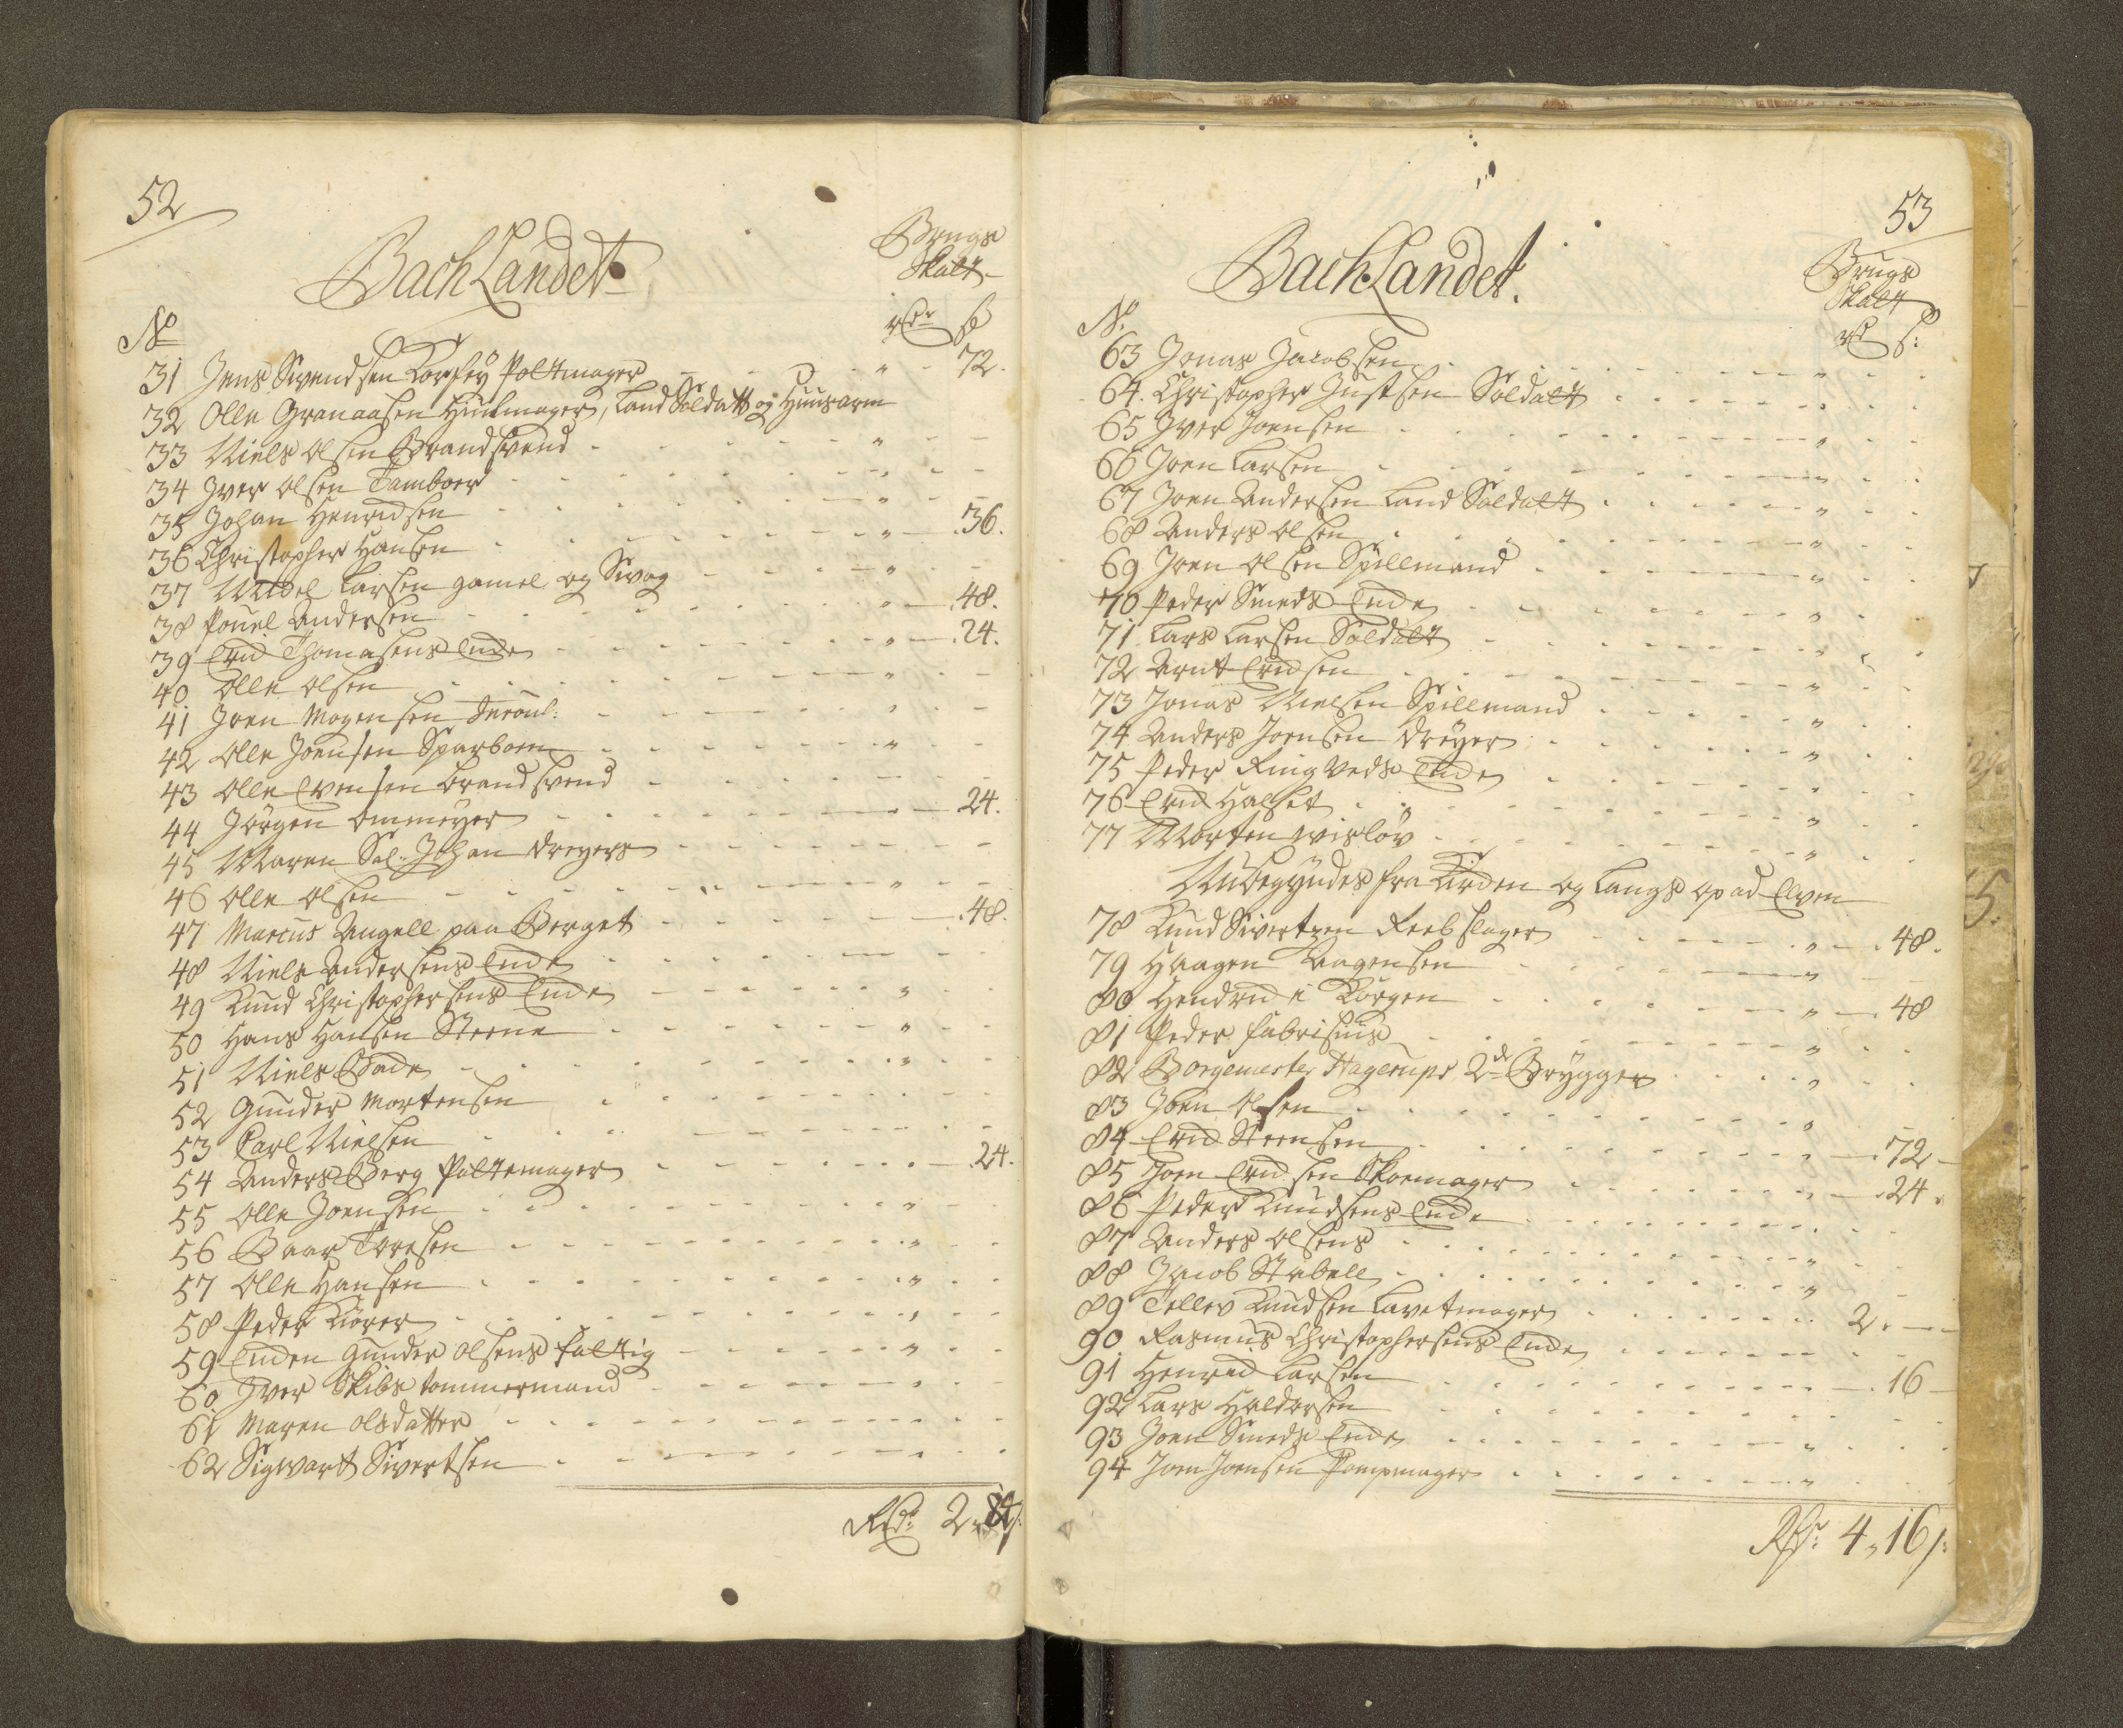 52
Bach Landet
Brugs
Skatt
No
rdr ß
31 Jens Svendsen Korsføy Pottmager " 72.
32 Olle Granaasen Huulmager, Land Soldatt og Huusarm
33 Niels Olsen Brandsvend "
34 Iver Olsen Tamboer "
35 Johan Henricsen "
36 Christopher Hansen " 36.
37 Michel Larsen gamel og Svag "
38 Pouel Andersen " 48.
39 Eric Thomasens Encke " 24.
40 Olle Olsen "
41 Joen Mogensen "
42 Olle Joensen Sparboen "
43 Olle Evensen Brandsvend
44 Jørgen Ommeyer " 24.
45 Maren Sal. Johan Dreyers
46 Olle Olsen "
47 Marcus Angell paa Berget 48.
48 Niels Andersens Encke
49 Knud Christophersens Encke "
50 Hans Hansen Steene "
51 Niels Bade "
52 Gunder Mortensen
53 Carl Nielsen
54 Anders Berg Pottemager " 24.
55 Olle Joensen "
56 Baar Toresen "
57 Olle Hansen "
58 Peder Kiører "
59 Encken Gunder Olsens fattig "
60 Iver Skibstømmermand "
61 Maren Olsdatter
62 Sigvart Sivertsen
Rdr 2 " 84 ß.
53
Bach Landet.
Brugs
Skatt
No.
rd ß:
63 Jonas Jacobsen "
64. Christopher Justsen Soldatt "
65 Iver Joensen "
66 Joen Larsen "
67 Joen Andersen Land Soldatt "
68 Anders Olsen "
69 Joen Olsen Spillmand "
70 Peder Smeds Encke "
71 Lars Larsen Soldatt "
72 Arnt Ericsen "
73 Jonas Nielsen Spillmand "
74 Anders Joensen Dreyer "
75 Peder Ringveds Encke "
76 Eric Halset "
77 Morten Wisløv "
Nu begyndes fra Kircken og Langs op ad Elven
78 Knud Sivertzen Reebslager " 48.
79 Haagen Aagensen "
80 Hendric i Korgen " 48
81 Peder Fabrisius "
82 Borgemester Hagerups 2de Brygger "
83 Joen Olsen "
84 Eric Steensen " 72
85 Joen Ericsen Skoemager " 24.
86 Peder Knudsens Encke
87 Anders Olsens "
88 Jacob Stabell "
89 Tellev Knudsen Lavetmager 2.
90 Rasmus Christophersens Encke
91 Henric Larsen 16
92 Lars Haldorsen
93 Joen Smeds Encke "
94 Joen Joensen Pompmager "
Rdr: 4 " 16 ß: